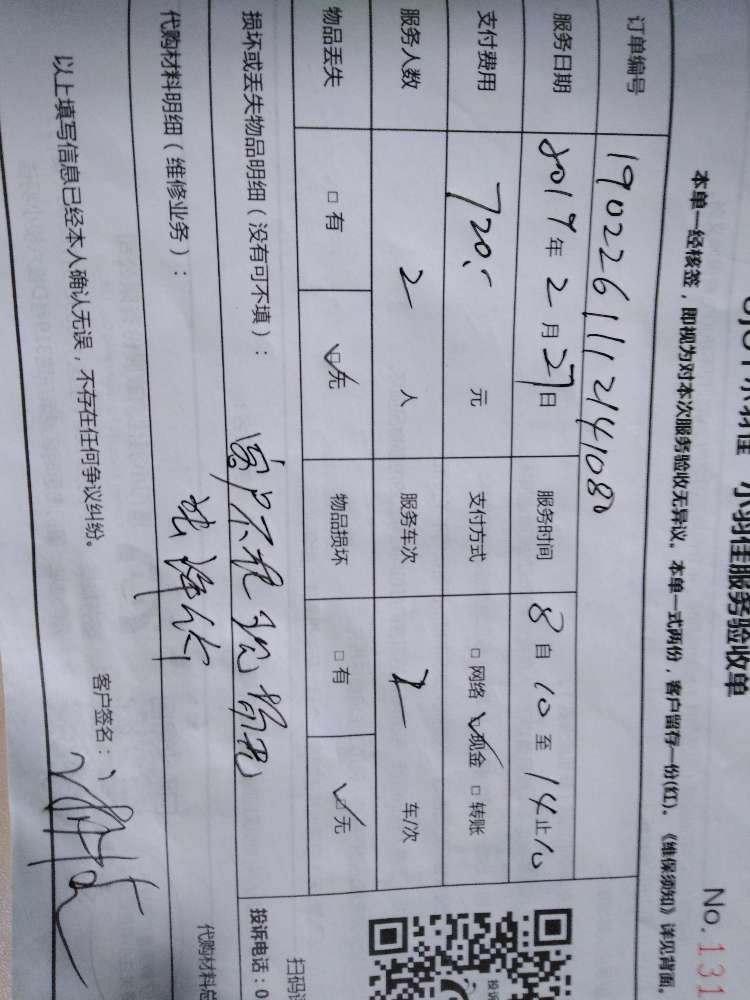 小羽佳服务验收单
No.131
本单一经核签，即视为对本次服务验收无异议。本单一式两份，客户留存一份(红)。《维保须知》详见背面
订单编号 1902261112141080
服务日期 2019年2月27日 服务时间 8自10至14止
支付费用 720.- 元 支付方式 □网络 ☑现金 □转账
服务人数 2 人 服务车次 2 车/次
物品丢失 □有 ☑无 物品损坏 □有 ☑无
损坏或丢失物品明细（没有可不填）： 客户不在现场
代购材料明细（维修业务）：
代购材料总
以上填写信息已经本人确认无误，不存在任何争议纠纷。
客户签名：
投诉电话：0